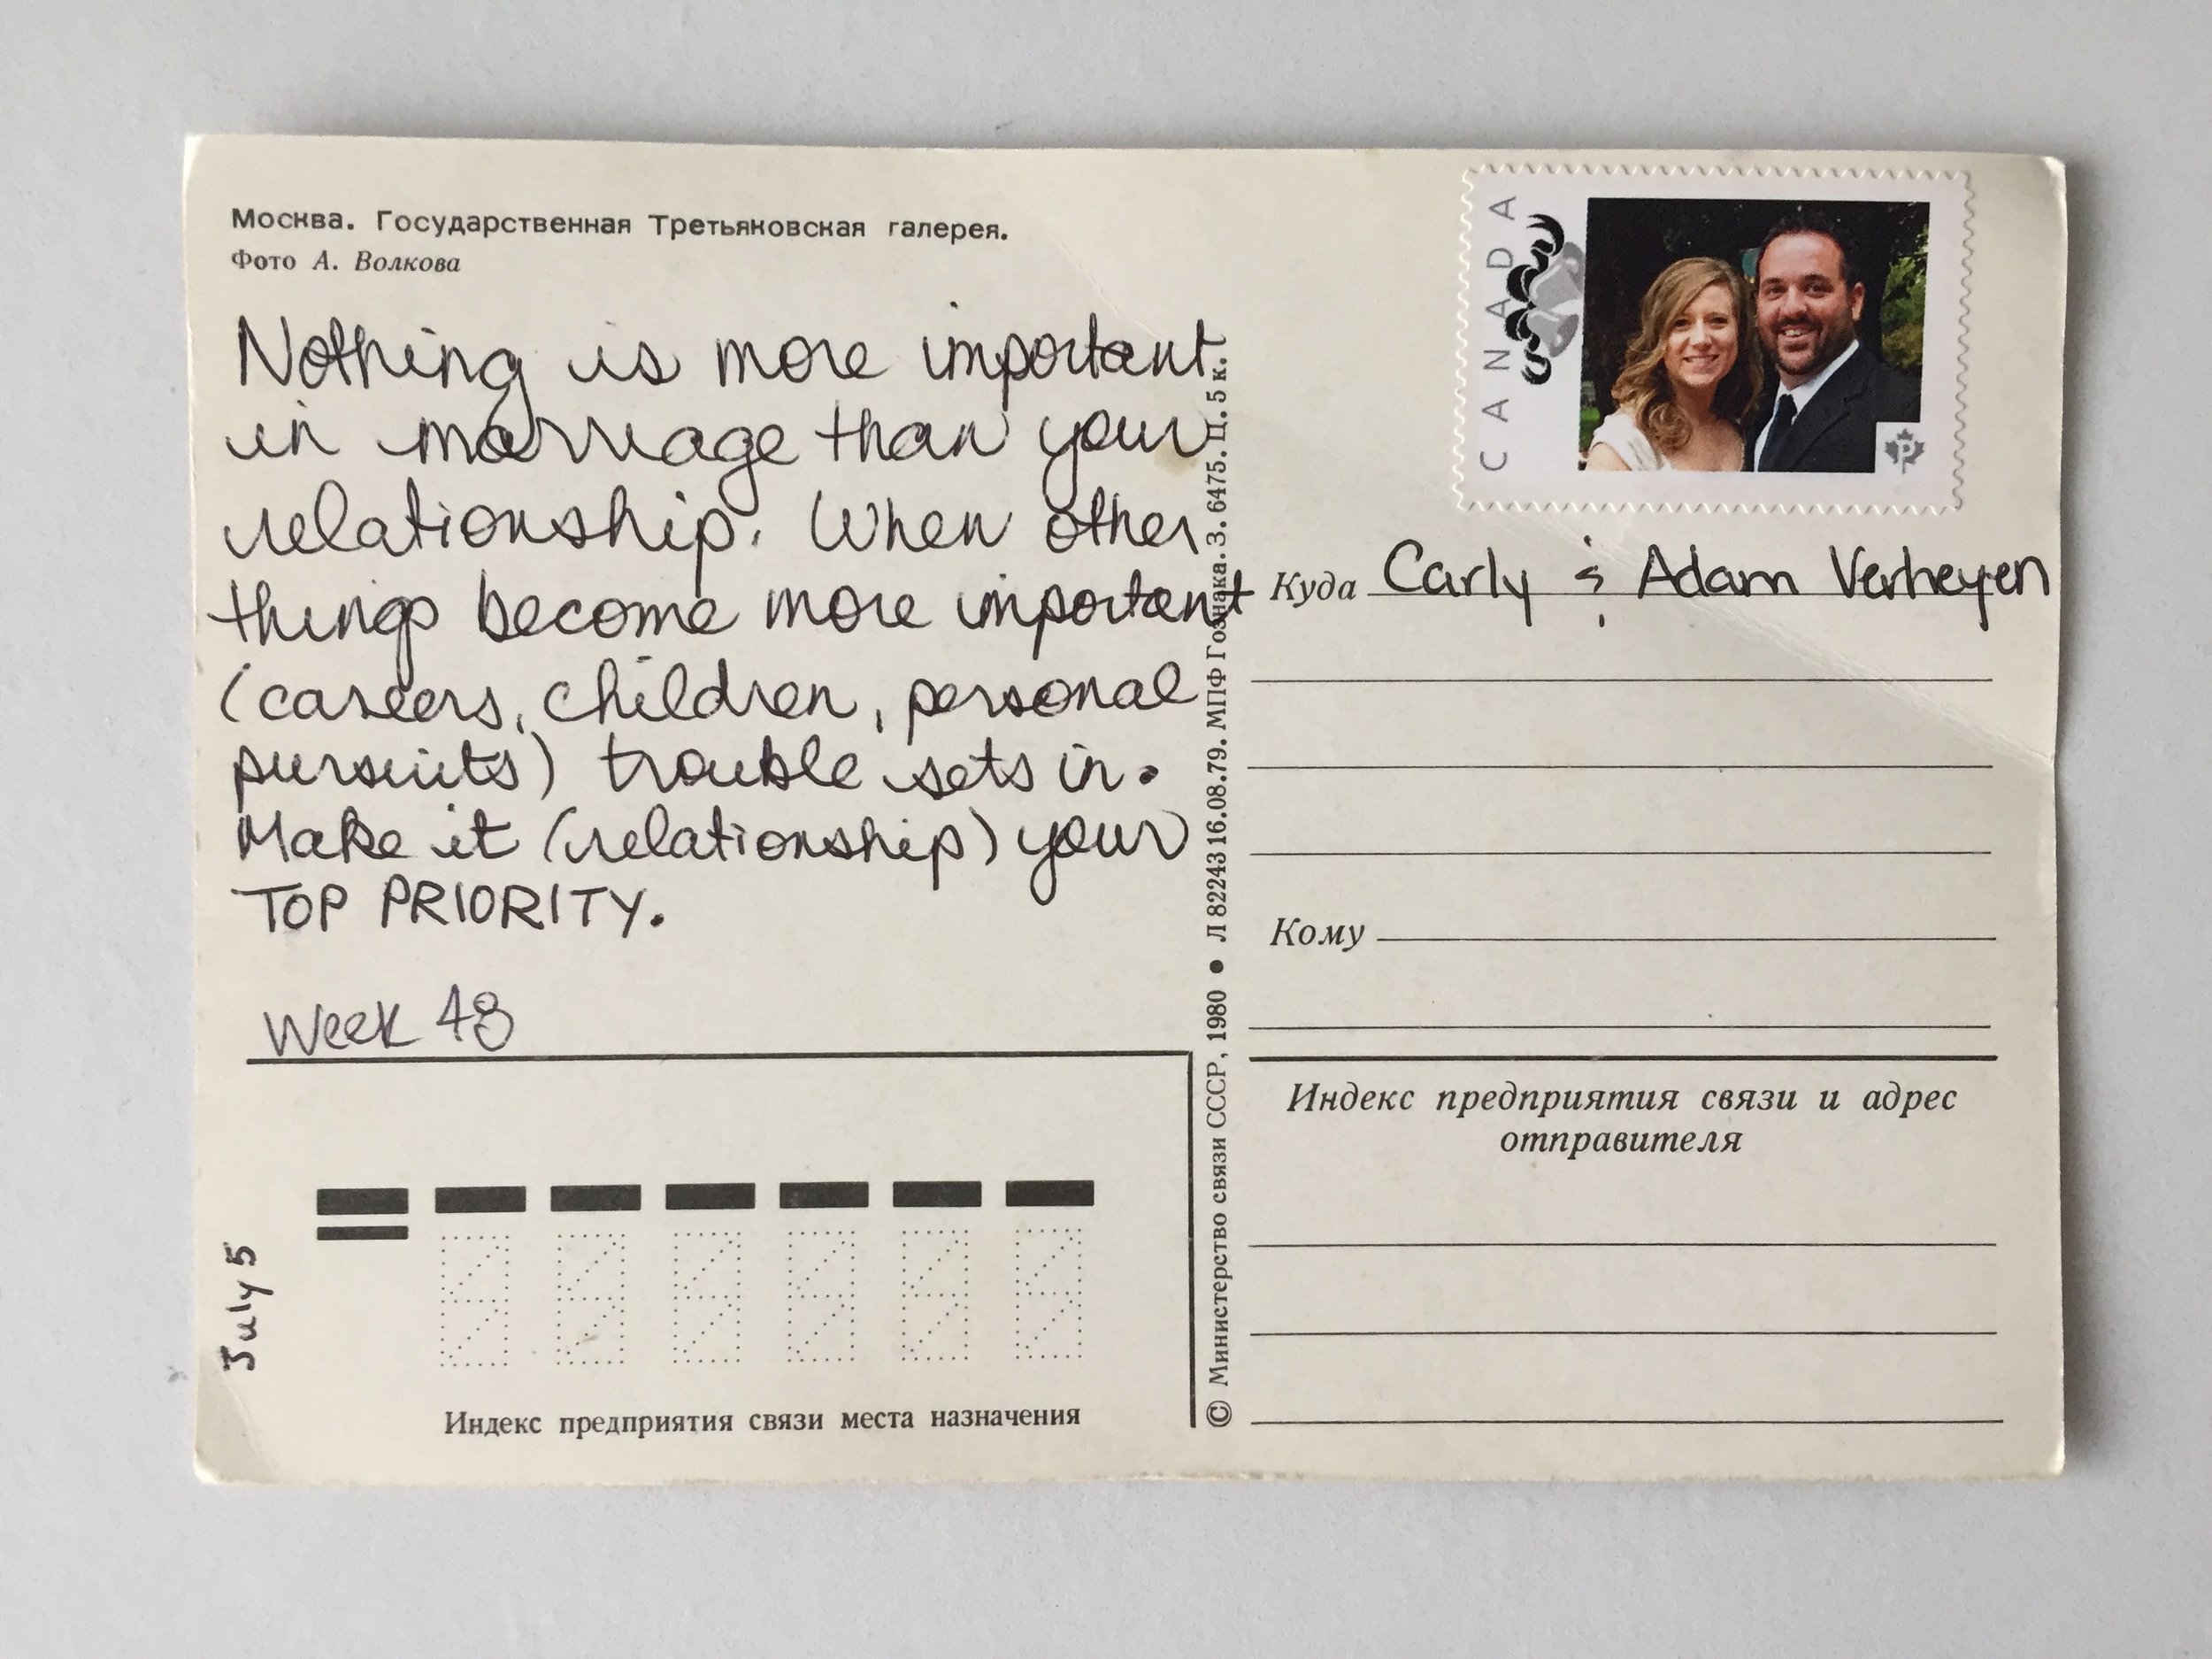 Москва. Государственная Третьяковская галерея.
Фото А. Волкова
Nothing is more important
in marriage than your
relationship. When other
things become more important
(careers, children, personal
pursuits) trouble sets in.
Make it (relationship) your
TOP PRIORITY.
Week 48
July 5
Индекс предприятия связи места назначения
© Министерство связи СССР, 1980 ● Л 82243 16.08.79. МПФ Гознака. З. 6475. Ц. 5 к.
CANADA
P
Куда Carly & Adam Verheyen
Кому
Индекс предприятия связи и адрес
отправителя